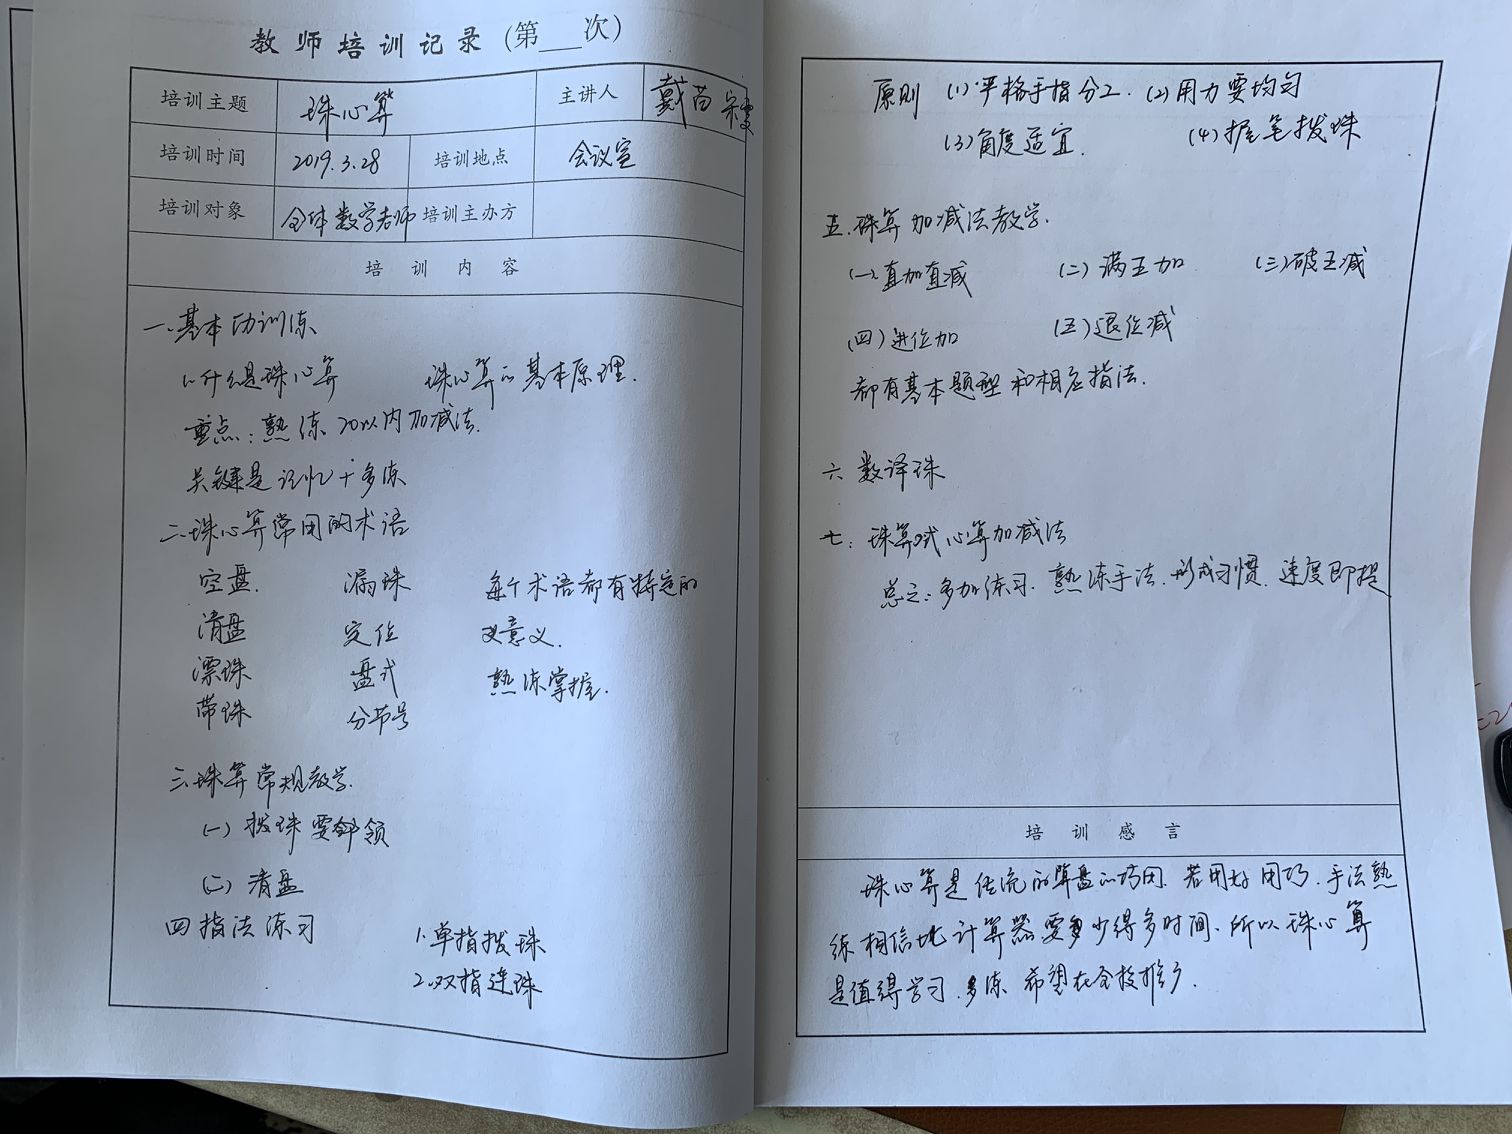 教师培训记录(第___次)
培训主题 珠心算 主讲人 戴苗 宋雯
培训时间 2019.3.28 培训地点 会议室
培训对象 全体数学老师 培训主办方
培训内容
一.基本功训练
1.什么是珠心算 珠心算的基本原理.
重点:熟练20以内加减法.
关键是记忆+多练
二.珠心算常用的术语
空盘. 漏珠 每个术语都有特定的
清盘 定位 意义.
漂珠 盘式 熟练掌握.
带珠 分节号
三.珠算常规教学.
(一)拨珠要领
(二)清盘
四指法练习 1.单指拨珠
2.双指连珠
原则 (1)严格手指分工.(2)用力要均匀
(3)角度适宜. (4)握笔拨珠
五.珠算加减法教学.
(一)直加直减 (二)满五加 (三)破五减
(四)进位加 (五)退位减
都有基本题型和相应指法.
六 数译珠
七:珠算式心算加减法
总之:多加练习.熟练手法.形成习惯.速度即提
培训感言
珠心算是传统的算盘的巧用.若用好用巧.手法熟
练相信比计算器要少得多时间.所以珠心算
是值得学习.多练 希望在全校推广.